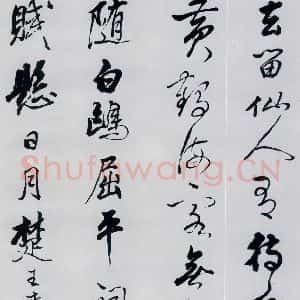 去留仙人有待
黄鶴海客無
随白鷗屈平詞
賦懸日月楚王
Shufawang.CN